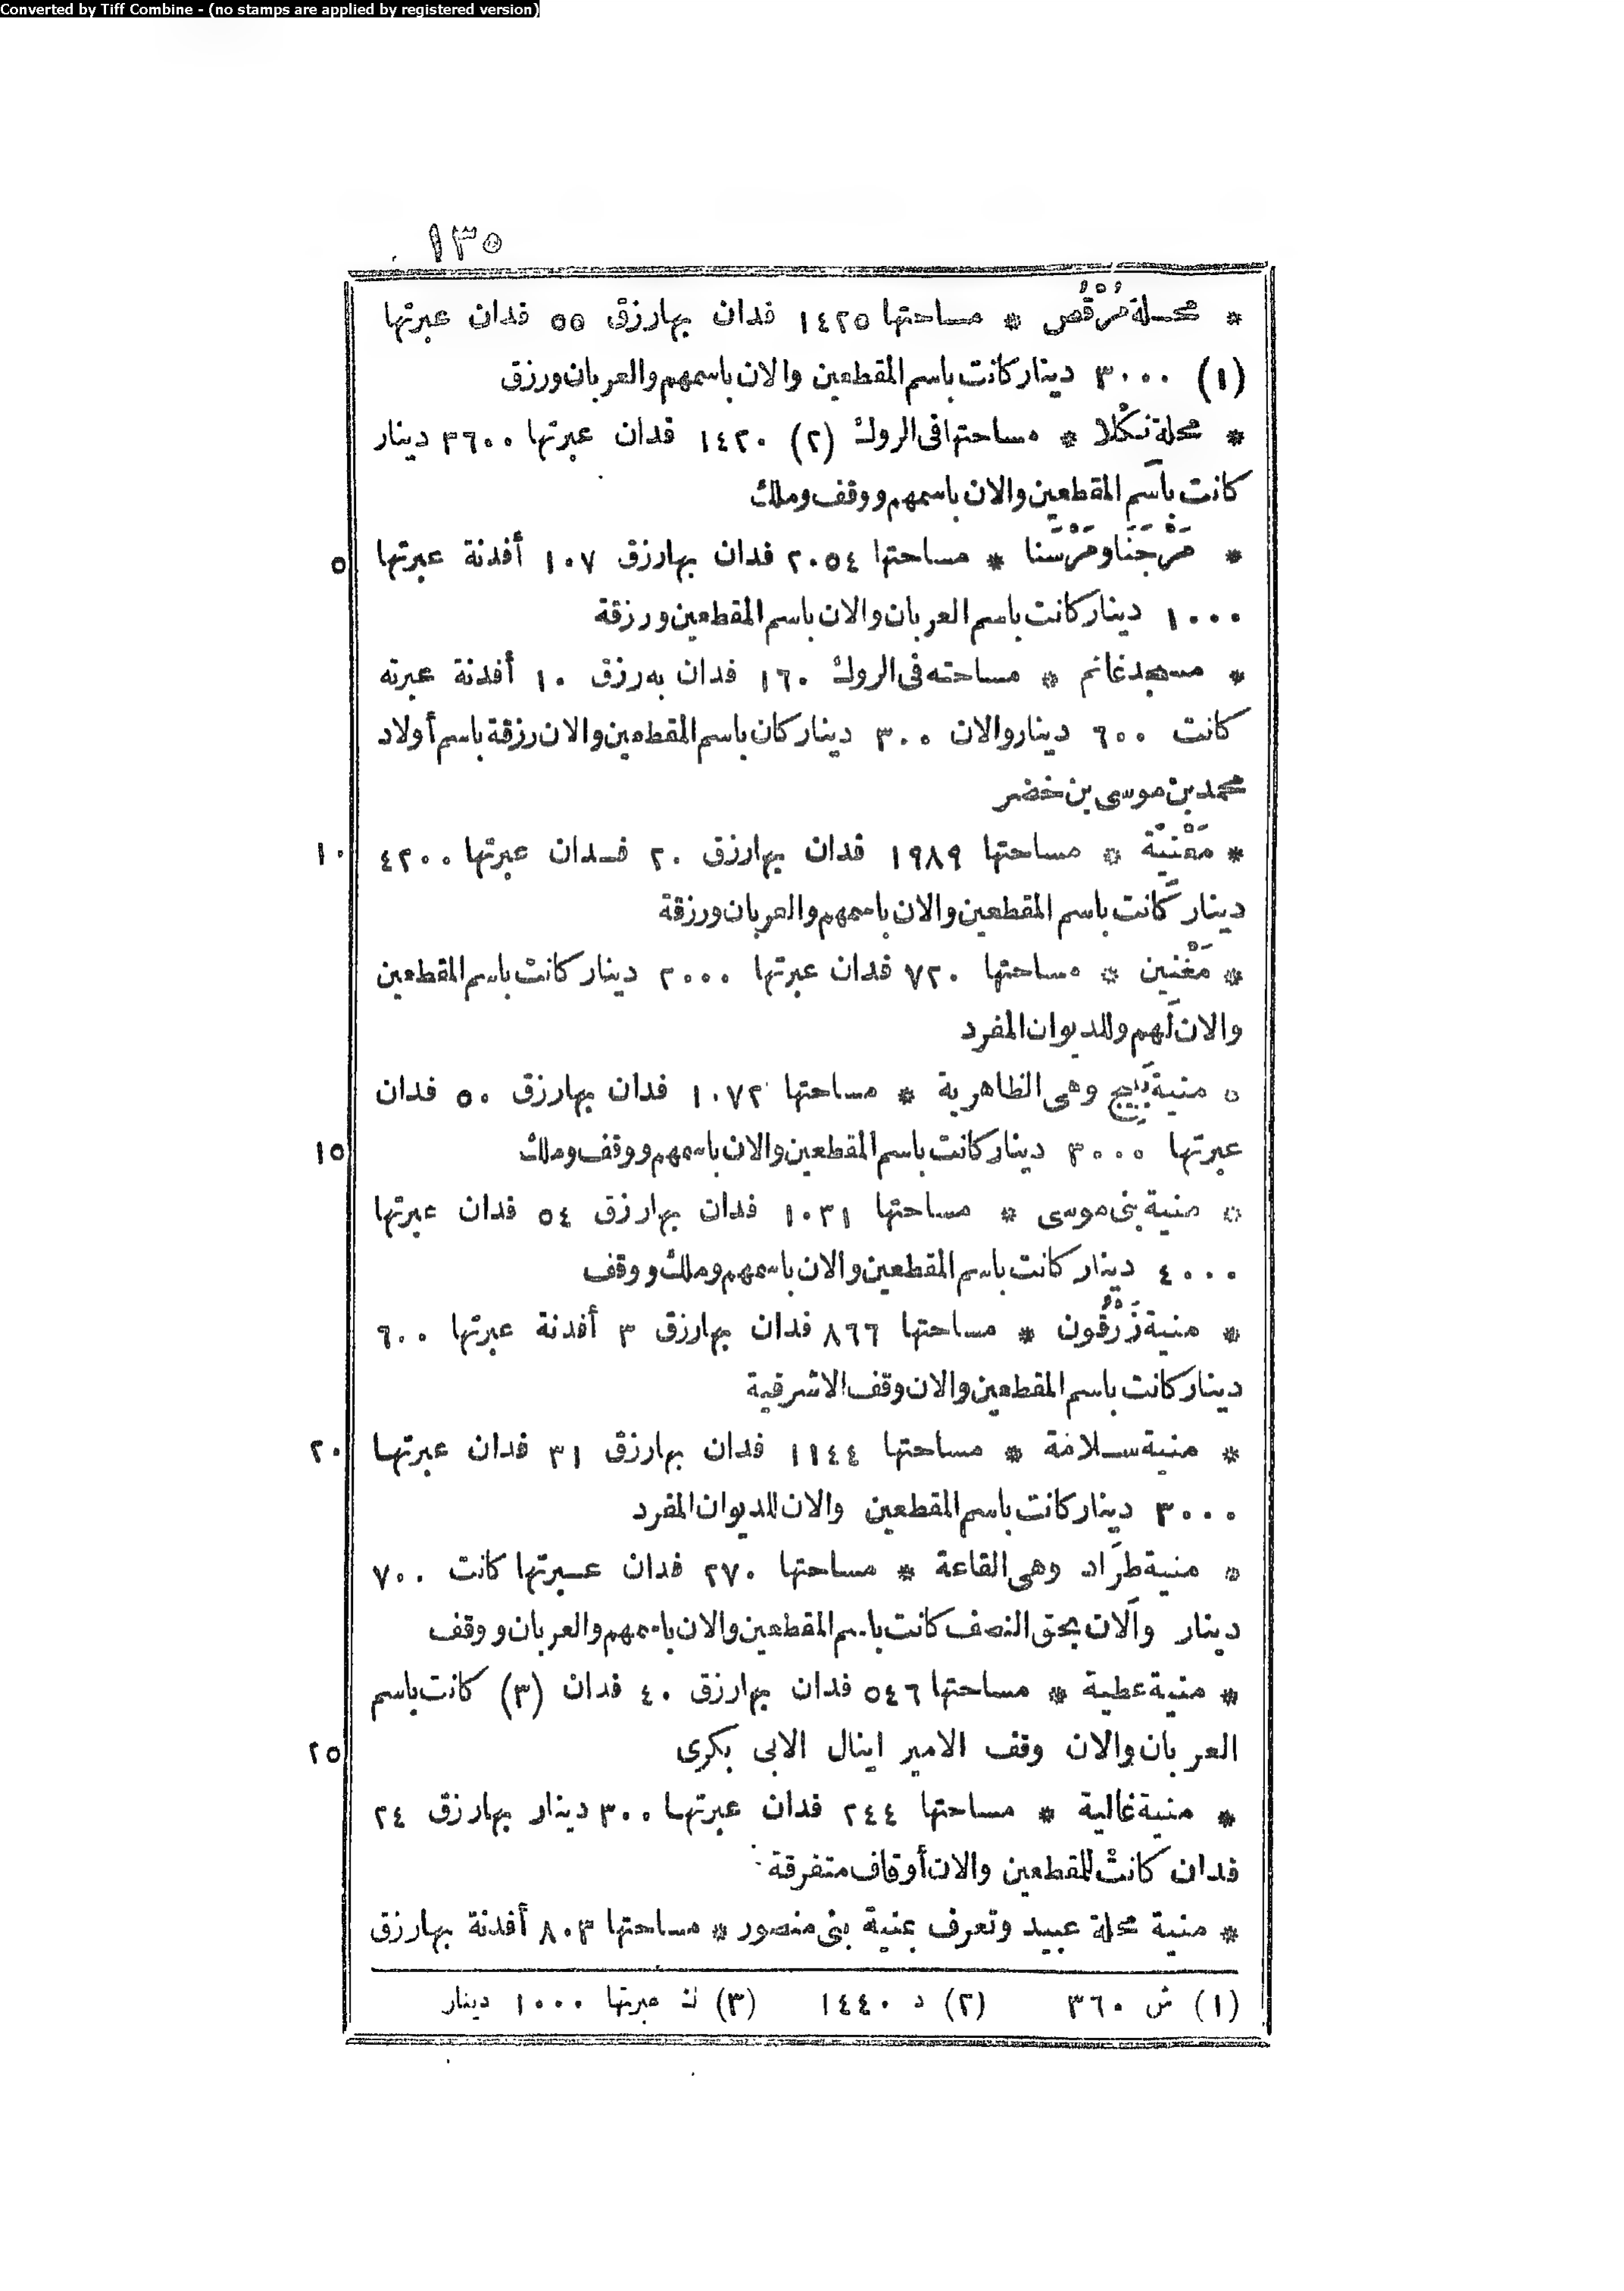 Converted by Tiff Combine - (no stamps are applied by registered version)
١٣٥
* محلة مُرْقُص * مساحتها ١٤٢٥ فدان بها رزق ٥٥ فدان عبرتها
(١) ٣٠٠٠ دينار كانت باسم المقطعين والان باسمهم والعربان ورزق
* محلة نكْلا * مساحتها فى الروك (٢) ١٤٢٠ فدان عبرتها ٣٦٠٠ دينار
كانت باسم المقطعين والان باسمهم ووقف وملك
* مَرْجَنَا ومَرْسَنا * مساحتها ٢٠٥٤ فدان بها رزق ١٠٧ أفدنة عبرتها ٥
١٠٠٠ دينار كانت باسم العربان والان باسم المقطعين ورزقة
* مسجد غانم * مساحته فى الروك ١٦٠ فدان به رزق ١٠ أفدنة عبرته
كانت ٦٠٠ دينار والان ٣٠٠ دينار كان باسم المقطعين والان رزقة باسم أولاد
محمد بن موسى بن خضر
* مَغْنِيّة * مساحتها ١٩٨٩ فدان بها رزق ٢٠ فدان عبرتها ٤٢٠٠ ١٠
دينار كانت باسم المقطعين والان باسمهم والعربان ورزقة
* مَغْنين * مساحتها ٧٢٠ فدان عبرتها ٢٠٠٠ دينار كانت باسم المقطعين
والان لهم وللديوان المفرد
* منية بَيِيج وهى الظاهرية * مساحتها ١٠٧٢ فدان بها رزق ٥٠ فدان
عبرتها ٣٠٠٠ دينار كانت باسم المقطعين والان باسمهم ووقف وملك ١٥
* منية بنى موسى * مساحتها ١٠٣١ فدان بها رزق ٥٤ فدان عبرتها
٤٠٠٠ دينار كانت باسم المقطعين والان باسمهم وملك ووقف
* منية زَرْقُون * مساحتها ٨٦٦ فدان بها رزق ٣ أفدنة عبرتها ٦٠٠
دينار كانت باسم المقطعين والان وقف الاشرفية
* منية سلامة * مساحتها ١١٤٤ فدان بها رزق ٣١ فدان عبرتها ٢٠
٣٠٠٠ دينار كانت باسم المقطعين والان للديوان المفرد
* منية طرَاد وهى القاعة * مساحتها ٢٧٠ فدان عبرتها كانت ٧٠٠
دينار والان بحق النصف كانت باسم المقطعين والان باسمهم والعربان ووقف
* منية عطية * مساحتها ٥٤٦ فدان بها رزق ٤٠ فدان (٣) كانت باسم
العربان والان وقف الامير اينال الابى بكرى ٢٥
* منية غالية * مساحتها ٢٤٤ فدان عبرتها ٣٠٠ دينار بها رزق ٢٤
فدان كانت للمقطعين والان أوقاف متفرقة
* منية محلة عبيد وتعرف بمنية بنى منصور * مساحتها ٨٠٣ أفدنة بها رزق
(١) ش ٣٦٠ (٢) د ١٤٤٠ (٣) ك عبرتها ١٠٠٠ دينار